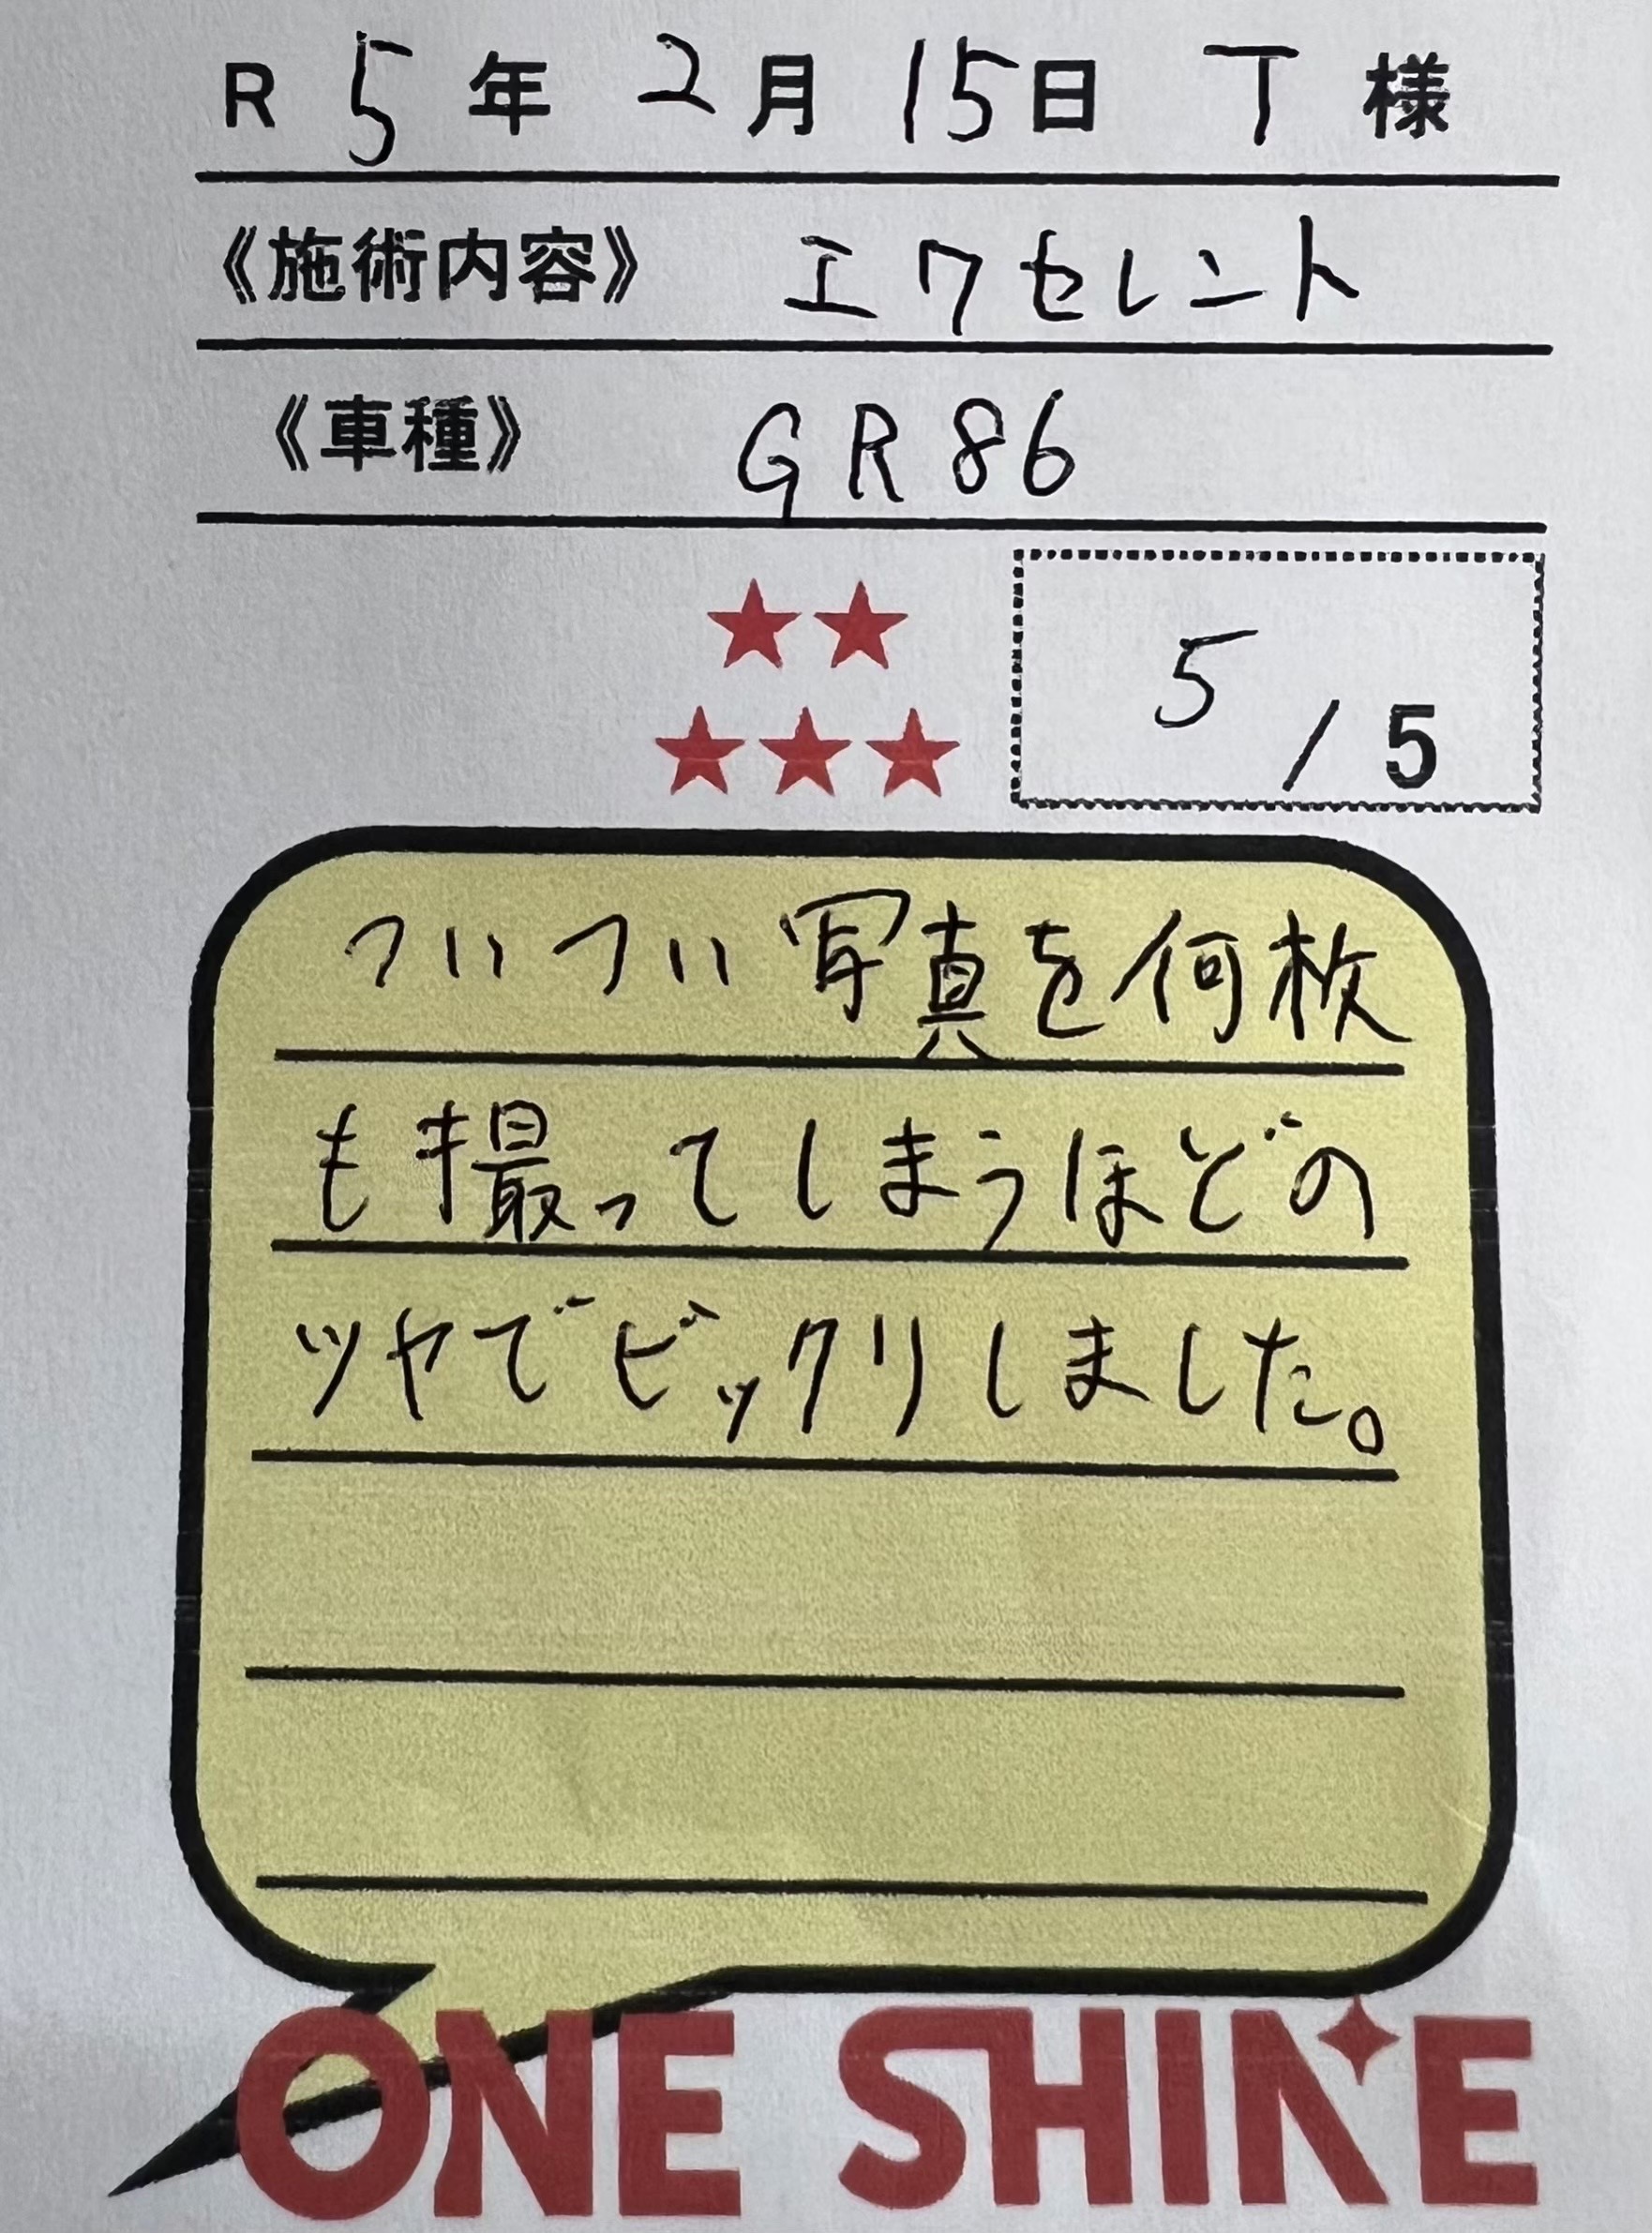 R 5 年 2 月 15 日 T 様
《施術内容》 エクセレント
《車種》 GR86
★★
★★★
5 / 5
ついつい写真を何枚
も撮ってしまうほどの
ツヤでビックリしました。
ONE SHINE